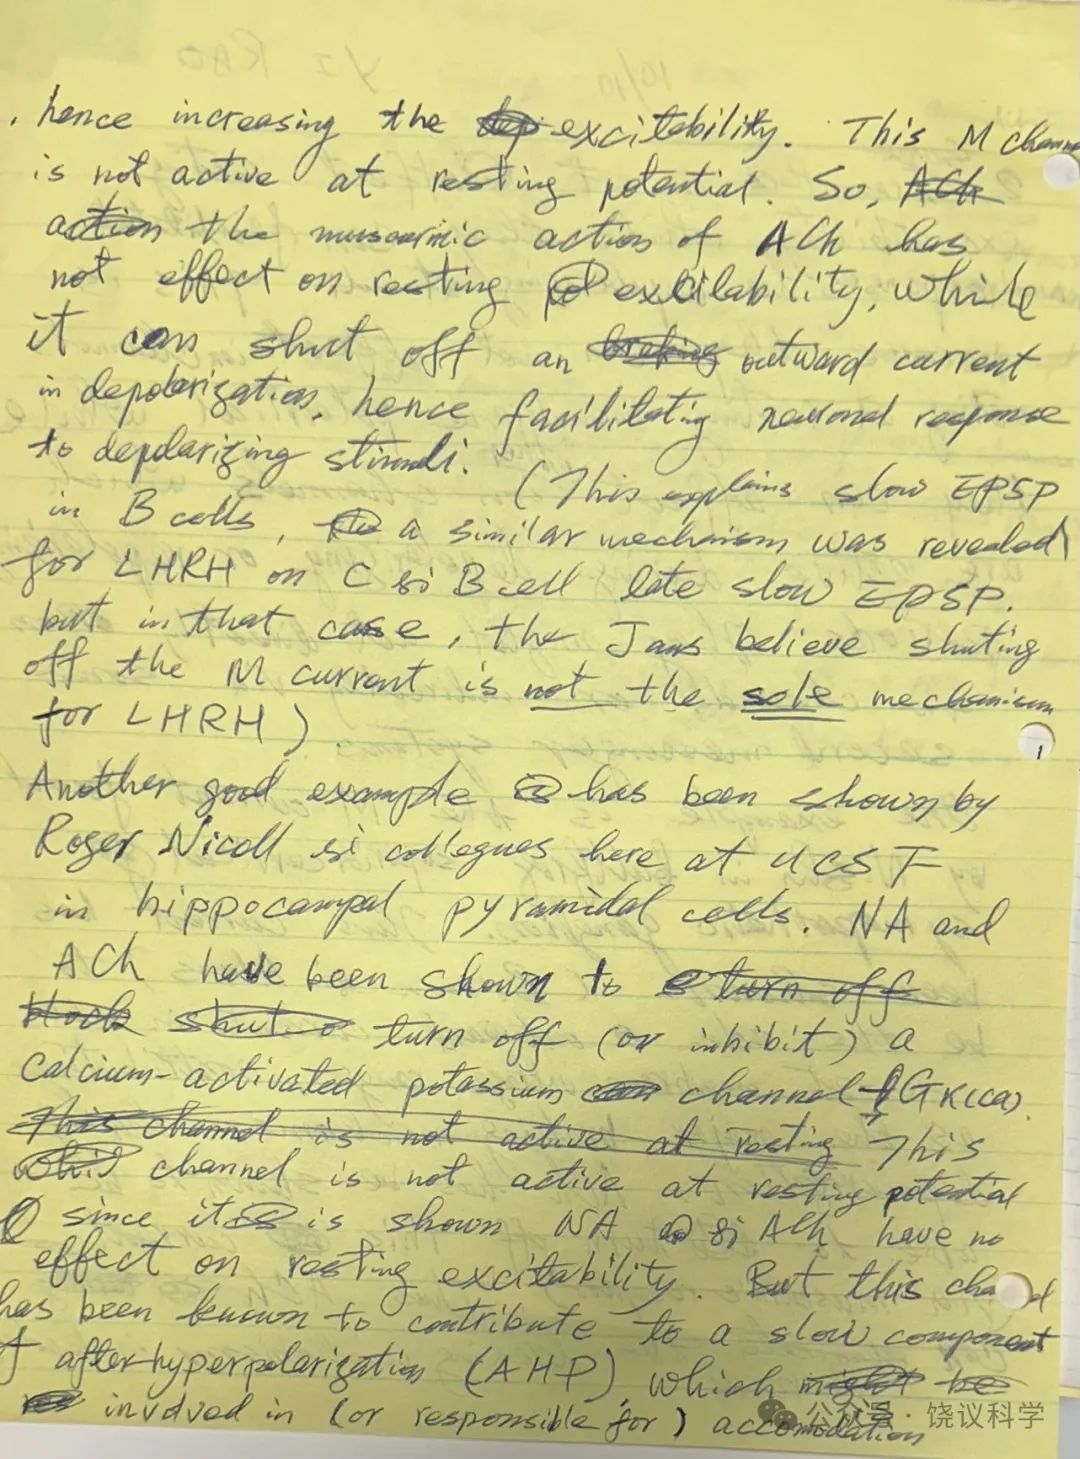 YI RAO
10/10
, hence increasing the dep excitebility. This M chann
is not active at resting potential. So, ACh
action the muscarinic action of ACh has
not effect on resting excitability, while
it can shut off an braking outward current
in depolarization, hence facilitating neuronal response
to depolarizing stimuli. (This explains slow EPSP
in B cells, a similar mechanism was revealed
for LHRH on C & B cell late slow EPSP.
but in that case, the Jans believe shuting
off the M current is not the sole mechanism
for LHRH).
Another good example is has been shown by
Roger Nicoll & collegues here at UCSF
in hippocampal pyramidal cells. NA and
ACh have been shown to turn off
block shut o turn off (or inhibit) a
calcium-activated potassium can channel GK(Ca).
This channel is not active at resting This
channel is not active at resting potential
since it is is shown NA & ACh have no
effect on resting excitability. But this cha el
has been known to contribute to a slow component
f after-hyperpolarization (AHP), which might be
involved in (or responsible for) accomodation
公众号 · 饶议科学